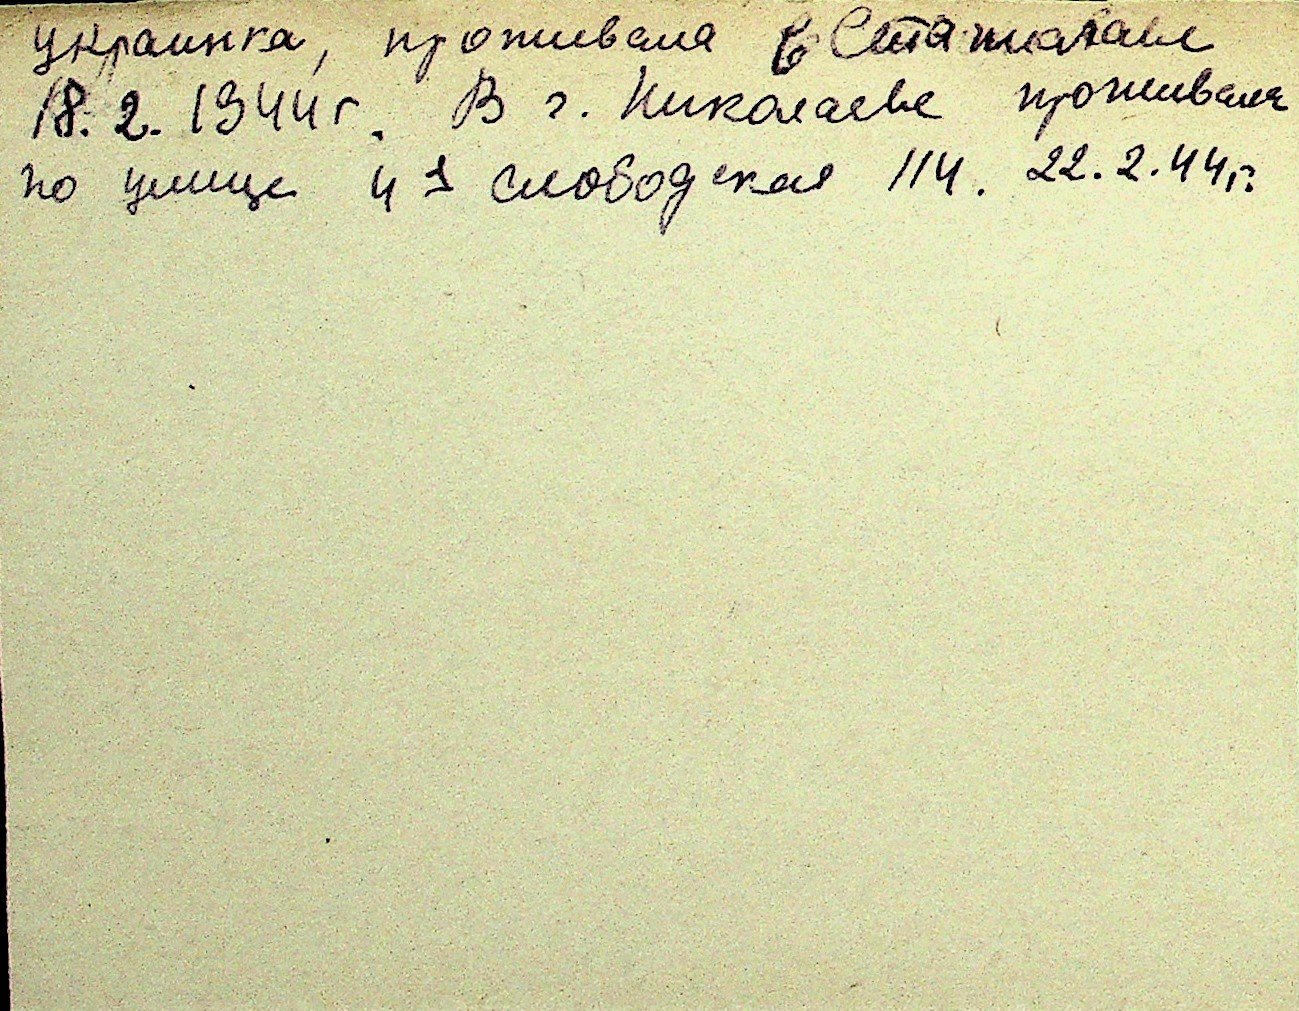 украинка, проживала в
18.2.1944г. В г. Николаеве проживала
по улице 4я слободская 114. 22.2.44г.